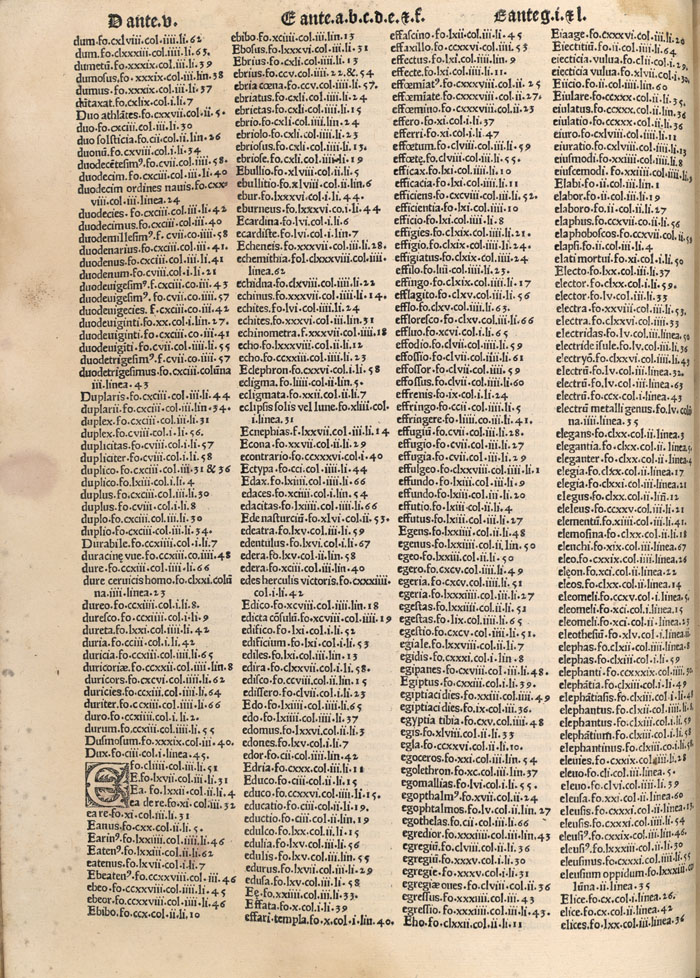 Dante.v.
E ante.a.b.c.d.e.⁊.f.
E anteg.i.⁊l.
dum.fo.cxlviii.col.iiii.li.62
dum.fo.clxxx.col.iiii.li.63.
dumetū.fo.xxxix.col.iii.li.39
dumosus.fo.xxxix.col.iii.lin.38
dumus.fo.xxxix.col.iii.li.37
Duo athlātes.fo.cxxvii.col.ii.5.
duo.fo.cxciii.col.iii.li.30
duo solsticia.fo.cii.col.ii.lin.26
duonū.fo.cxviii.col.i.li.34
duodecētesimꝰ.fo.cvii.co.iiii.58.
duodecim.fo.cxciii.col.iii.li.40
duodecim ordines nauis.fo.cxx
viii.col.iii.linea.24
duodecies.fo.cxciii.col.iii.li.42
duodecimus.fo.cxciii.col.iii.40
duodemillesimꝰ.f.cvii.co.iiii.58
duodenarius.fo.cxciii.col.iii.41.
duodenus.fo.cxciii.col.iii.li.41
duodenum.fo.cviii.col.i.li.21
duodeuigesimꝰ.f.cxciii.co.iii.43
duodeuigesimꝰ.fo.cvii.co.iiii.57
duodeuigecies.f.cxciii.co.iii.42
duodeuiginti.fo.xx.col.i.lin.27.
duodeuiginti.fo.cxciii.co.iii.41
duodeuigiti.fo.cvii.col.iiii.55
duodetrigesimꝰ.f.cvii.co.iiii.57
duodetrigesimus.fo.cxciii.colūna
iii.linea.43
Duplaris.fo.cxciii.col.iii.li.44
duplarii.fo.cxciii.col.iii.lin.34.
duplex.fo.cxciii.col.iii.li.31
duplex.fo.cviii.col.i.li.56.
duplicitas.fo.cviii.col.i.li.57
dupliciter.fo.cviii.col.i.li.58
duplico.fo.cxciii.col.iii.31 & 36
duplico.fo.lxii.col.i.li.4
duplus.fo.cxciii.col.iii.li.30
duplus.fo.cviii.col.i.li.8
duplo.fo.cxciii.col.iii.li.30
duplio.fo.cxciii.col.iii.li.34.
Durabile.fo.ccxiiii.col.i.li.7
duracine vue.fo.ccxiii.co.iiii.48
dure.fo.ccxiii.col.iiii.li.66
dure ceruicis homo.fo.clxxi.colū
na.iiii.linea.23
dureo.fo.ccxiiii.col.i.li.8.
duresco.fo.ccxiiii.col.i.li.9
dureta.fo.lxxi.col.iiii.li.42
duria.fo.ciii.col.i.li.42
duricia.fo.ccxiii.col.iiii.li.65
duricoriæ.fo.ccxxii.col.iiii.lin.8
duricors.fo.cxcvi.col.iiii.li.62
duricies.fo.ccxiii.col.iiii.li.64
duriter.fo.ccxiii.col.iiii.li.66
duro.fo.ccxiiii.col.i.li.2.
durum.fo.ccxiii.col.iiii.li.55
Dusmosum.fo.xxxix.col.iii.40.
Dux.fo.ciii.col.i.linea.45.
E fo.cliiii.col.iii.li.51
E.fo.lxvii.col.iii.li.31
Ea.fo.lxxii.col.ii.li.4
ea de re.fo.xi.col.iii.32
ea re.fo.xi.col.iii.li.31
Eanus.fo.cxx.col.ii.li.5.
Earinꝰ.fo.lxxxiii.col.iiii.li.46
Eatenꝰ.fo.lxxiii.col.ii.li.62
eatenus.fo.lxvii.col.i.li.7
Ebeatenꝰ.fo.ccxxviii.col.iii.46
ebeo.fo.ccxxviii.col.iiii.li.45
ebeor.fo.ccxxviii.col.iiii.li.46
Ebibo.fo.ccx.col.ii.li.10
ebibo.fo.xcii.col.iii.lin.13
Ebosus.fo.lxxxvi.col.iii.li.31
Ebrius.fo.cxli.col.iiii.li.13
ebrius.fo.ccv.col.iiii.22.&.54
ebria cœna.fo.ccv.col.iiii.li.57.
ebriatus.fo.cxli.col.iiii.li.24
ebrietas.fo.cxli.col.iiii.li.15
ebrio.fo.cxli.col.iiii.lin.24
ebriolo.fo.cxli.col.iiii.li.23
ebriosus.fo.cxli.col.iiii.li.13.
ebriose.fo.cxli.col.iiii.li.19
Ebullio.fo.xlviii.col.ii.li.5
ebullitio.fo.xlviii.col.ii.lin.6
ebur.fo.lxxxvi.col.iii.li.44.
eburneus.fo.lxxxvi.col.ii.li.44
Ecardina.fo.lvi.col.i.li.6
ecardiste.fo.lvi.col.i.lin.7
Echeneis.fo.xxxvii.col.iii.li.28.
echemithia.fol.clxxxviii.col.iiii.
linea.62
echidna.fo.clxviii.col.iiii.li.22
echinus.fo.xxxvii.col.iiii.li.14.
echites.fo.lvi.col.iii.li.24
echites.fo.xxxvi.col.iii.lin.31
echinometra.f.xxxvii.col.iiii.18
echo.fo.lxxxviii.col.ii.li.12
echo.fo.ccxxiii.col.iiii.li.23
Eclephron.fo.cxxvi.col.i.li.58
ecligma.fo.liiii.col.ii.lin.5.
ecligmata.fo.xxii.col.ii.li.7
eclipsis solis vel lune.fo.xliii.col.
i.linea.31
Ecnephias.f.lxxvii.col.iii.li.14
Econa.fo.xxvi.col.ii.li.29
econtrario.fo.ccxxxvi.col.i.40
Ectypa.fo.cci.col.iiii.li.44
Edax.fo.lxiiii.col.iiii.li.66
edaces.fo.xciiii.col.i.lin.54
edacitas.fo.lxiiii.col.iiii.li.66
Ede nasturciū.fo.xlvi.col.ii.53.
edeatra.fo.lxv.col.i.li.59
edentulus.fo.lxvi.col.i.li.67
edera.fo.lxv.col.iii.lin.58
edera.fo.xciii.col.iii.lin.40
edes herculis victoris.fo.cxxxiiii.
col.i.li.42
Edico.fo.xcviii.col.iiii.lin.18
edicta cōsulū.fo.xcviii.col.iiii.19
edifico.fo.lxi.col.i.li.52
edificium.fo.lxi.col.i.li.53
ediles.fo.lxi.col.iii.lin.13
edira.fo.clxxvii.col.iii.li.58.
edisco.fo.ccviii.col.iii.lin.15
edissero.fo.clvii.col.ii.li.23
Edo.fo.lxiiii.col.iiii.li.65
edo.fo.lxiiii.col.iiii.li.37
edomus.fo.lxxii.col.i.li.3
edones.fo.lxv.col.i.li.7
edor.fo.cii.col.iiii.lin.42
Edria.fo.cxxx.col.iii.li.11
Educo.fo.ciii.col.ii.li.15
educo.fo.ccxxxvi.col.i.li.15.
educatio.fo.ciii.col.ii.li.19.
eductio.fo.ciii.col.ii.lin.19
edulco.fo.lxx.col.ii.li.15
edulia.fo.lxv.col.i.li.56
edulis.fo.lxv.col.i.lin.55
edurus.fo.lxvii.col.iii.li.29
edusa.fo.lxv.col.iii.li.58
Eę.fo.xxiiii.col.iii.li.33.
Effata.fo.x.col.i.li.39
effari templa.fo.x.col.i.lin.40.
effascino.fo.lxii.col.iii.li.45
effaxillo.fo.ccxxxvi.col.iiii.53
effectus.fo.lxi.col.iiii.lin.9
effecte.fo.lxi.col.iiii.li.11.
effœmiatꝰ.fo.cxxxviii.col.ii.25
effœmiate.fo.cxxxviii.col.ii.27.
effœmino.fo.cxxxviii.col.ii.23
effero.fo.xi.col.i.li.37
efferri.fo.xi.col.i.li.47
effœtum.fo.clviii.col.iii.li.59
effœtę.fo.clviii.col.iii.li.55.
efficax.fo.lxi.col.iiii.li.10
efficacia.fo.lxi.col.iiii.li.11
efficiens.fo.cxxviii.col.iii.li.52.
efficientia.fo.lxi.col.iiii.li.10
efficio.fo.lxi.col.iiii.li.8
effigies.fo.clxix.col.iiii.li.21.
effigio.fo.clxix.col.iiii.li.24.
effigiatus.fo.clxix.col.iiii.li.24
effilo.fo.liii.col.iiii.li.23.
effingo.fo.clxix.col.iiii.li.17
efflagito.fo.clxv.col.iii.li.56
efflo.fo.clxv.col.iii.li.63.
effloresco.fo.clxv.col.iii.li.66
effluo.fo.xcvi.col.i.li.65
effodio.fo.clvii.col.iiii.li.59
effossio.fo.clvii.col.iiii.li.61
effossor.fo.clvii.col.iiii.li.59
effossus.fo.clvii.col.iiii.li.60
effrenis.fo.ix.col.i.li.24
effringo.fo.ccii.col.iiii.li.5
effringere.fo.liii.co.iii.li.41.
effugiū.fo.cvii.col.iii.li.28.
effugio.fo.cvii.col.iii.li.27
effugia.fo.cvii.col.iii.li.29
effulgeo.fo.clxxviii.col.iiii.li.1
effundo.fo.lxiii.col.iii.li.9
effundo.fo.lxiii.col.iii.li.20
effutio.fo.lxiii.col.ii.li.4
effutus.fo.lxiii.col.iii.li.27
Egens.fo.lxxxiii.col.ii.li.48
egenus.fo.lxxxiii.col.ii.lin.50
egeo.fo.lxxxiii.col.ii.li.50
egero.fo.cxcv.col.iiii.li.49
egeria.fo.cxcv.col.iiii.li.51
egeria.fo.lxxxiiii.col.iii.li.27
egestas.fo.lxxxiii.col.ii.li.51
egestas.fo.lix.col.iiii.li.65
egestio.fo.cxcv.col.iiii.li.51.
egiale.fo.lxxvii.col.ii.li.7
egidis.fo.cxxxi.col.i.lin.8
egipanes.fo.cxviii.col.iii.li.48.
Egiptus.fo.cxxiii.col.i.li.39.
egiptiaci dies.fo.xxiii.col.iiii.49
egiptiaci dies.fo.ix.col.iii.36.
egyptia tibia.fo.cxv.col.iiii.48
egis.fo.xlviii.col.ii.li.33
egla.fo.ccxxvi.col.ii.li.10.
egoceros.fo.xxi.col.iiii.lin.54
egolethron.fo.xc.col.iii.lin.37
egomallias.fo.lvi.col.iii.li.55.
egopthalmꝰ.fo.xvii.col.iii.24
egophtalmos.fo.lv.col.iii.lin.27
egothelas.fo.cii.col.iii.li.66
egredior.fo.xxxiiii.col.iiii.lin.43
egregiū.fo.clxiii.col.iii.li.31
egregiū.fo.xxxv.col.i.li.30
egregie.fo.xxxv.col.i.li.31
egregiæ oues.fo.clviii.col.ii.36
egressus.fo.xxxiiii.col.iiii.li.43
egressio.fo.xxxiiii.col.iii.li.43.
Eho.fo.clxxii.col.ii.li.11
Eiaage.fo.cxxxvi.col.iii.li.20.
Eiectitiū.fo.ii.col.iiii.li.64
Eiicio.fo.ii.col.iiii.lin.60
eiuro.fo.clxviii.col.iiii.li.11
eiusmodi.fo.xxiiii.col.iiii.li.8
Elabi.fo.ii.col.iii.lin.1
elabor.fo.ii.col.iii.li.19
elaboro.fo.ii.col.ii.li.27
elaphus.fo.ccxxvi.col.ii.li.56
elapsi.fo.ii.col.iii.li.4
elati mortui.fo.xi.col.i.li.50
Electo.fo.lxx.col.iii.li.37
elector.fo.clxx.col.ii.li.59.
elector.fo.lv.col.iii.li.33
electra.fo.xxviii.col.iii.li.53.
electrū.fo.lv.col.iiii.li.63
electrū.fo.ccx.col.i.linea.43
electrū metalli genus.fo.lv.colū
na.iiii.linea.35
elegans.fo.clxx.col.ii.linea.3
elegia.fo.clxx.col.ii.linea.17
elegia.fo.clxxi.col.iii.linea.21
elegus.fo.clxx.col.ii.lin.12
eleleus.fo.ccxxv.col.ii.li.21
elementū.fo.xiiii.col.iii.li.41.
elemosina.fo.clxx.col.ii.li.18
elenchi.fo.xix.col.iii.linea.67
eleo.fo.ccxix.col.iiii.linea.26
eleon.fo.xci.col.ii.linea.22
eleos.fo.clxx.col.ii.linea.14
eleomeli.fo.xci.col.i.linea.15
eleomeli.fo.xci.col.ii.linea.23
elephas.fo.clxiii.col.i.li.59
elephantus.fo.clviii.col.iii.li.59
eleuies.fo.xxix.col.iiii.li.28
eleuo.fo.cli.col.ii.linea.5.
eleuo.fo.clvi.col.iii.li.39
eleusa.fo.xxi.col.ii.linea.60
eleusis.fo.cxxi.col.iiii.li.54
eleusinus.fo.cxxxi.col.iiii.li.55
eleusium oppidum.fo.lxxxvi.co
lūna.ii.linea.35
Elice.fo.cx.col.i.linea.26.
elice.fo.cx.col.ii.linea.42
elices.fo.lxx.col.iiii.linea.36